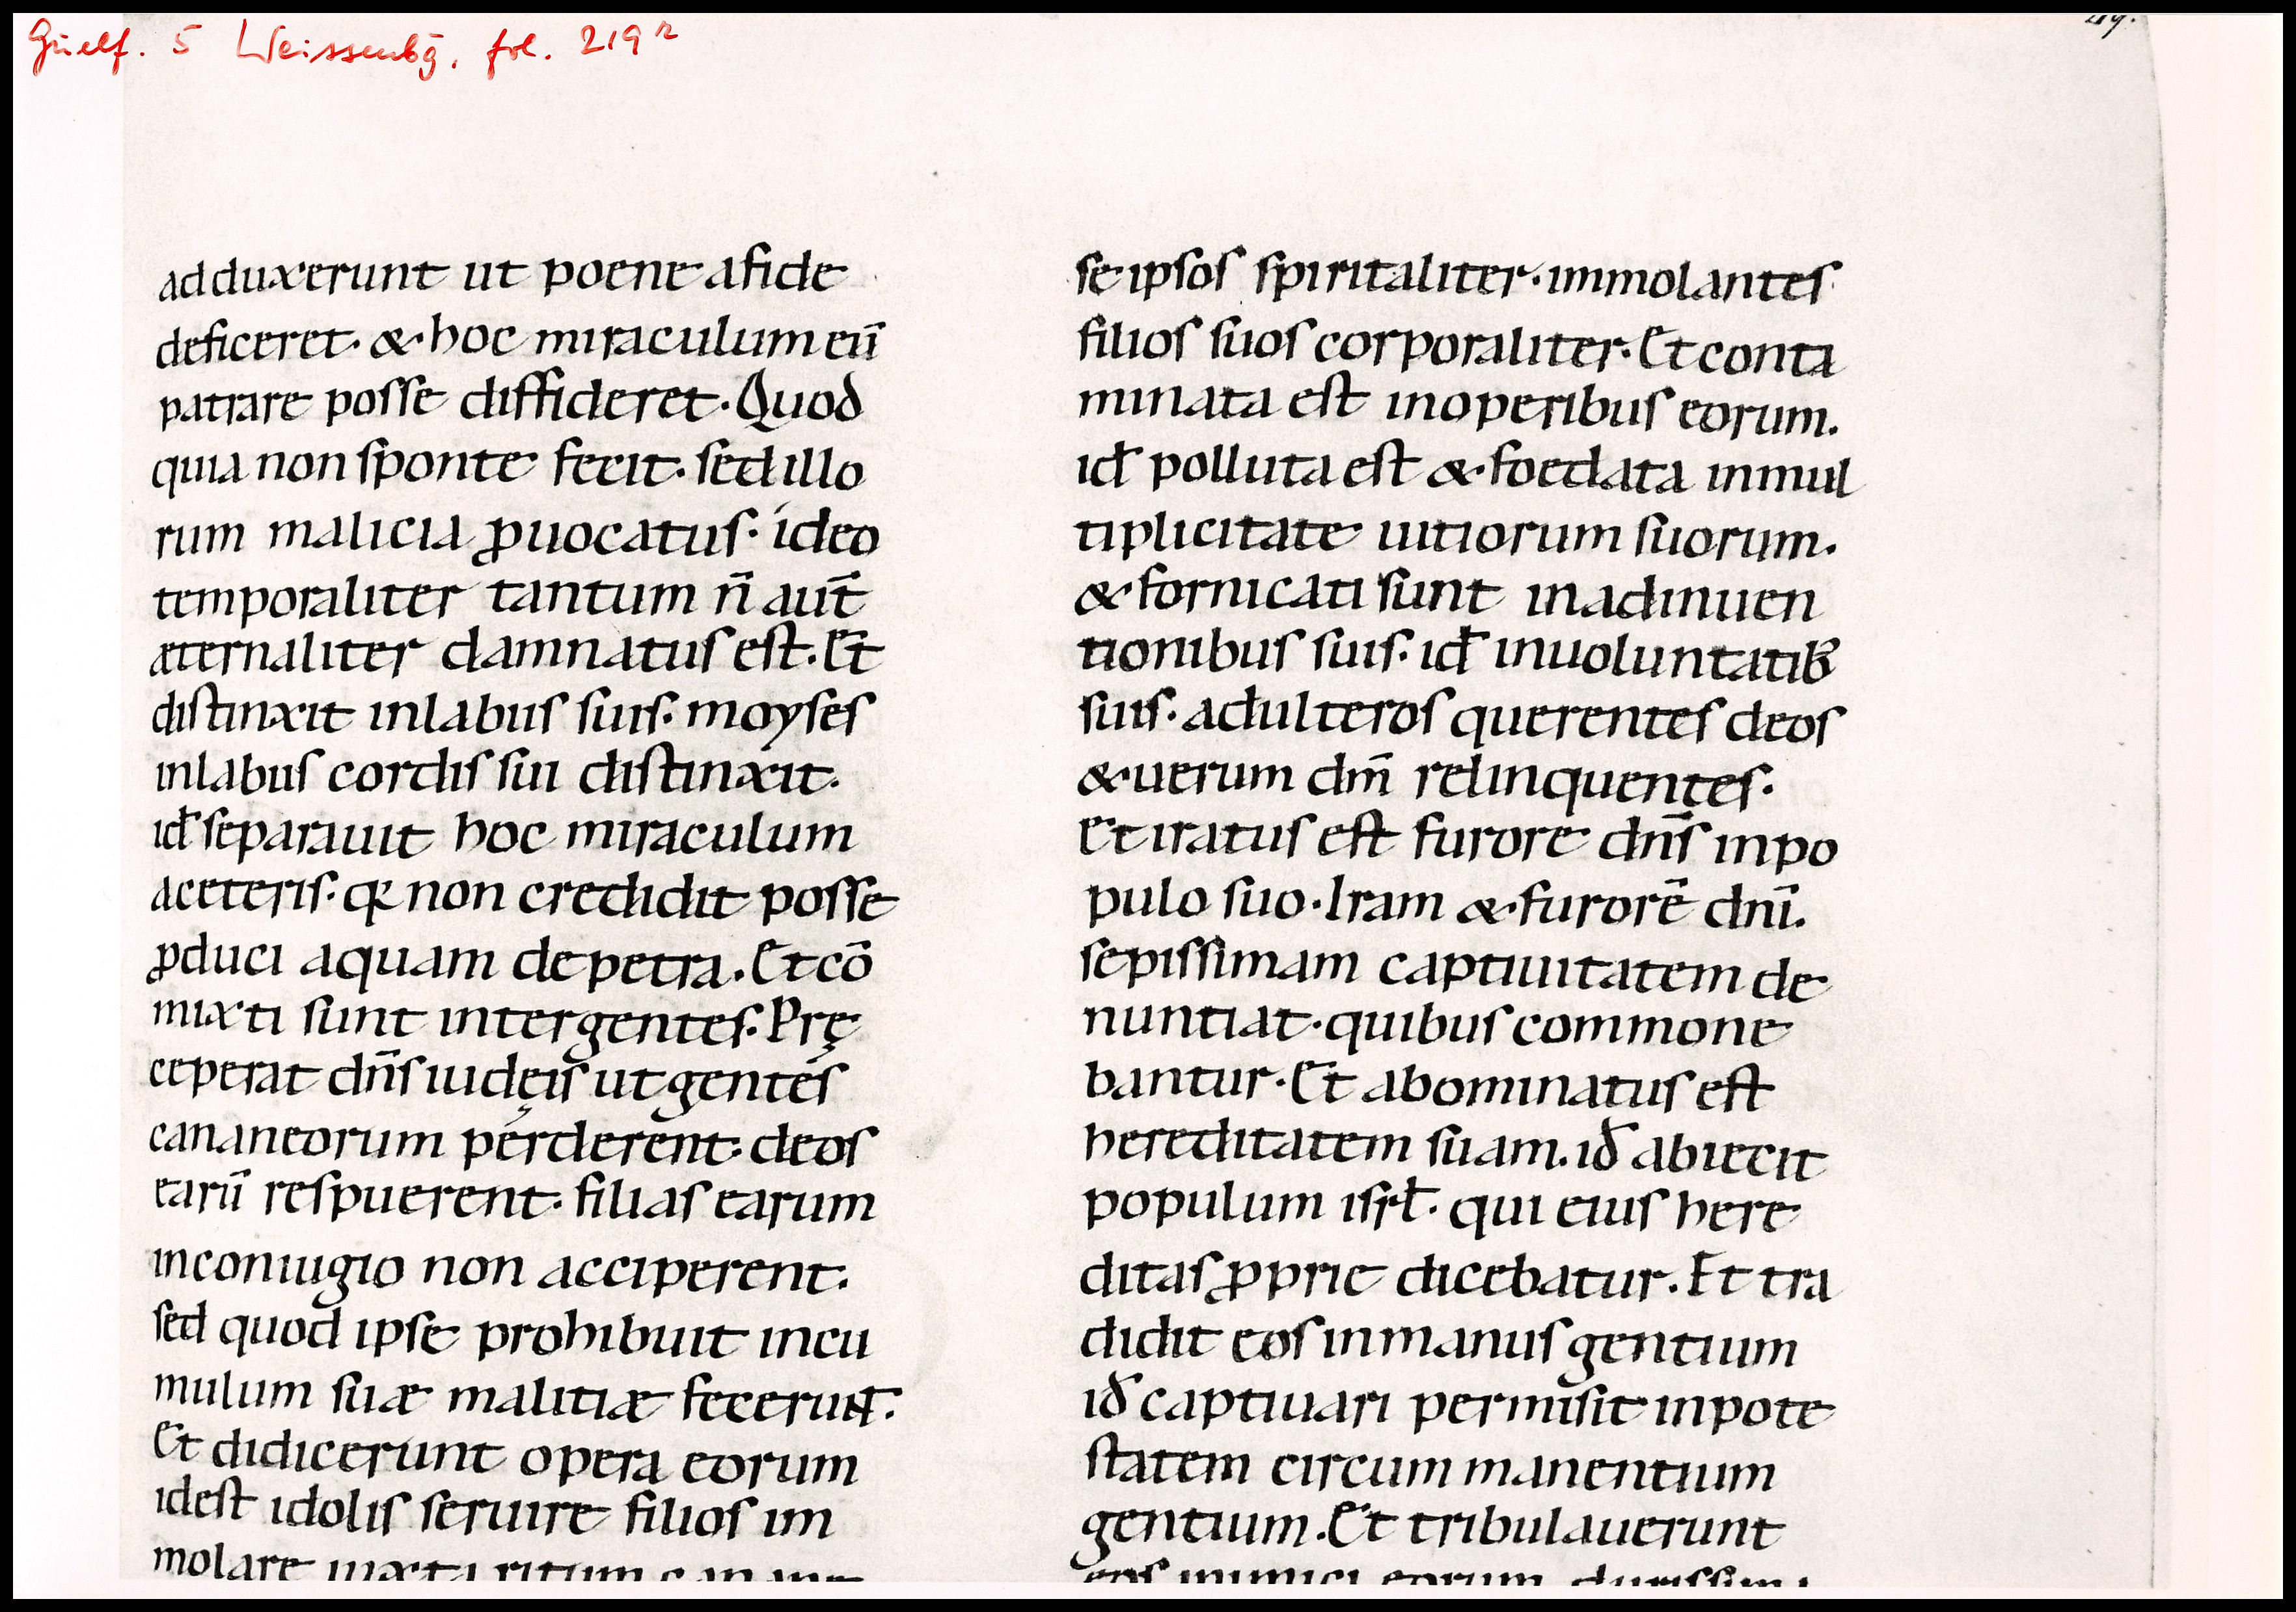 Guelf. 5 Weissenbg. fol. 219r
219.
adduxerunt ut poene afide
deficeret· & hoc miraculum eū
patrare posse diffideret· Quod
quia non sponte fecit· sed illo
rum malicia ꝓuocatus· ideo
temporaliter tantum n̄ aut̄
æternaliter damnatus est· Et
distinxit inlabiis suis· moyses
inlabiis cordis sui distinxit·
id̄ separauit hoc miraculum
aceteris· qꝛ non credidit posse
ꝓduci aquam depetra· Et cō
mixti sunt inter gentes· Prę
ceperat dn̄s iudęis ut gentes
cananeorum perderent· deos
earū respuerent· filias earum
inconiugio non acciperent·
sed quod ipse prohibuit incu
mulum suæ malitiæ fecerunt̄·
Et didicerunt opera eorum
idest idolis seruire filios im
molare iuxta ritum canane
se ipsos spiritaliter· immolantes
filios suos corporaliter· Et conta
minata est inoperibus eorum·
id̄ polluta est & foedata inmul
tiplicitate uitiorum suorum·
& fornicati sunt inadinuen
tionibus suis· id̄ inuoluntatib̄
suis· adulteros querentes deos
& uerum dm̄ relinquentes·
Et iratus est furore dn̄s inpo
pulo suo· Iram & furorē dn̄i·
sepissimam captiuitatem de
nuntiat· quibus commone
bantur· Et abominatus est
hereditatem suam· id̄ abiecit
populum isrł· qui eius here
ditas ꝓprie dicebatur· Et tra
didit eos inmanus gentium
id̄ captiuari permisit inpote
statem circum manentium
gentium· Et tribulauerunt
eos inimici eorum durissimi